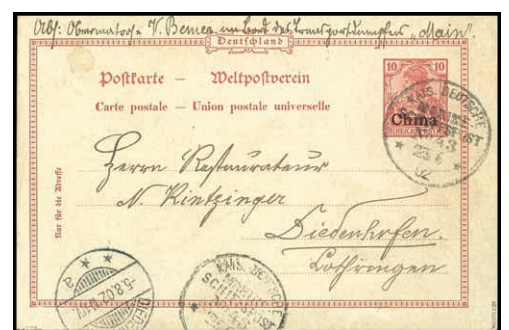 Abs: Obermatrose V. Bemer an Bord des Transportdampfers „Main".
Deutschland
Postkarte — Weltpostverein
Carte postale — Union postale universelle
10 10
China
KAIS. DEUTSCHE
MARINE
SCHIFFSPOST
No 43
23 6
02
Nur für die Adresse
Herrn Restaurateur
N. Rintzinger
Diedenhofen.
Lothringen
5.8.02
a
KAIS. DEUTSCHE
MARINE
SCHIFFSPOST